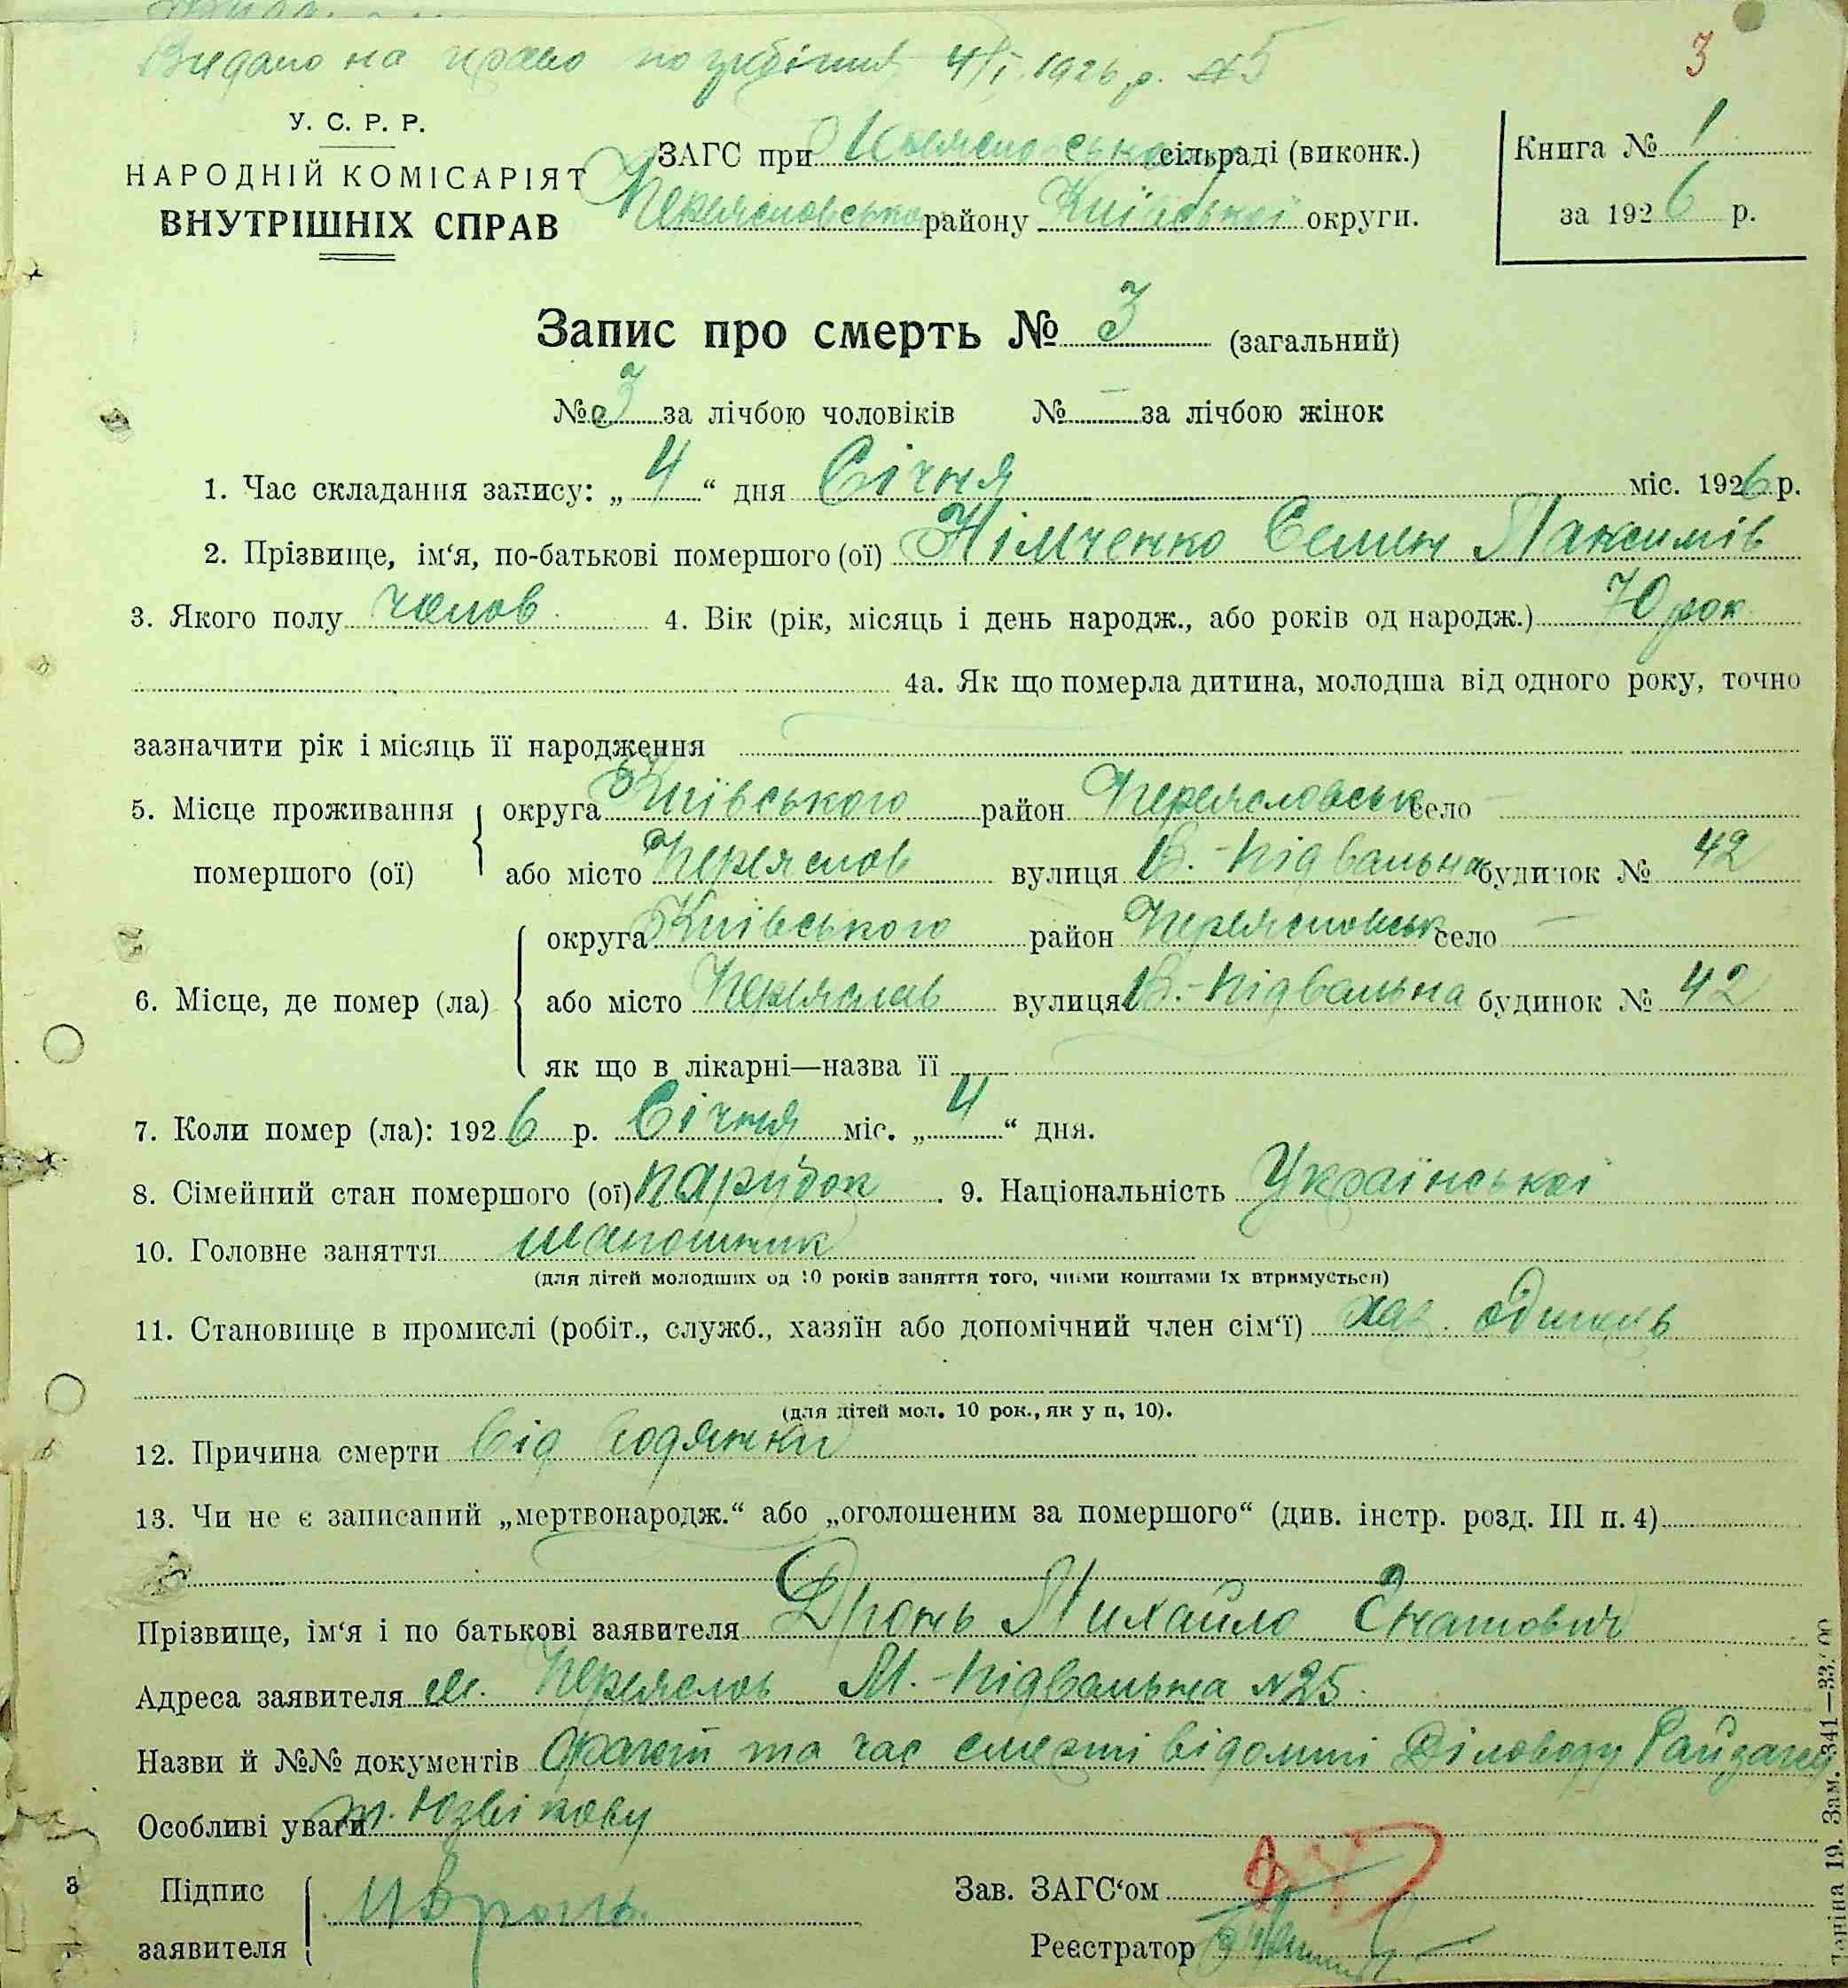 Видано на право похорония 4/I 1926 р. №5
3
У. С. Р. Р.
НАРОДНІЙ КОМІСАРІЯТ
ВНУТРІШНІХ СПРАВ
ЗАГС при сільраді (виконк.)
Переяславсько району Київської округи.
Книга № 1
за 1926 р.
Запис про смерть № 3 (загальний)
№ 3 за лічбою чоловіків № — за лічбою жінок
1. Час складання запису: „ 4 “ дня Січня міс. 1926 р.
2. Прізвище, ім‘я, по-батькові помершого (ої) Німченко Семен Максимів
3. Якого полу чолов. 4. Вік (рік, місяць і день народж., або років од народж.) 70 рок
4а. Як що померла дитина, молодша від одного року, точно
зазначити рік і місяць її народження
5. Місце проживання помершого (ої) округа Київського район Переясловськ село —
або місто Переяслов вулиця В.-Підвальна будинок № 42
6. Місце, де помер (ла) округа Київського район Переясловськ село —
або місто Переяслав вулиця В.-Підвальна будинок № 42
як що в лікарні—назва її
7. Коли помер (ла): 1926 р. Січня міс. „ 4 “ дня.
8. Сімейний стан помершого (ої) парубок. 9. Національність Української
10. Головне заняття шапошник
(для дітей молодших од 10 років заняття того, чиїми коштами їх втримується)
11. Становище в промислі (робіт., служб., хазяїн або допомічний член сім‘ї) хаз. одинець
(для дітей мол. 10 рок., як у п, 10).
12. Причина смерти від водянки
13. Чи не є записаний „мертвонародж.“ або „оголошеним за помершого“ (див. інстр. розд. III п. 4)
Прізвище, ім‘я і по батькові заявителя Дронь Михайло Гнатович
Адреса заявителя м. Переяслов М.-Підвальна №25.
Назви й №№ документів факт та час смерті відомі Діловоду Райзагсу
Особливі уваги т.
Підпис заявителя МДронь
Зав. ЗАГС‘ом
Реєстратор
3
19. Зам. 341—33.00